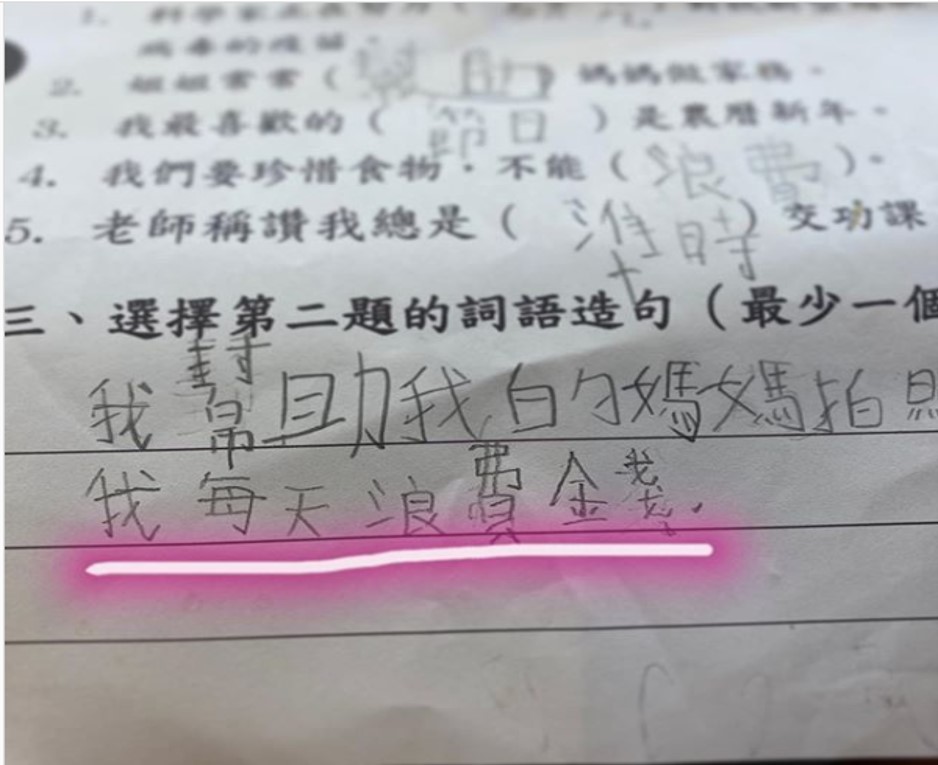 1. 科學家正在努力（
病毒的疫苗。
2. 姐姐常常（幫助）媽媽做家務。
3. 我最喜歡的（節日）是農曆新年。
4. 我們要珍惜食物，不能（浪費）。
5. 老師稱讚我總是（準時）交功課
三、選擇第二題的詞語造句（最少一個
我幫助我的媽媽拍照
我每天浪費金錢。